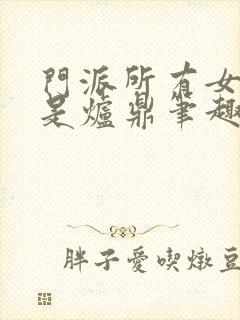 門派所有女
是爐鼎筆趣
胖子愛喫燉豆